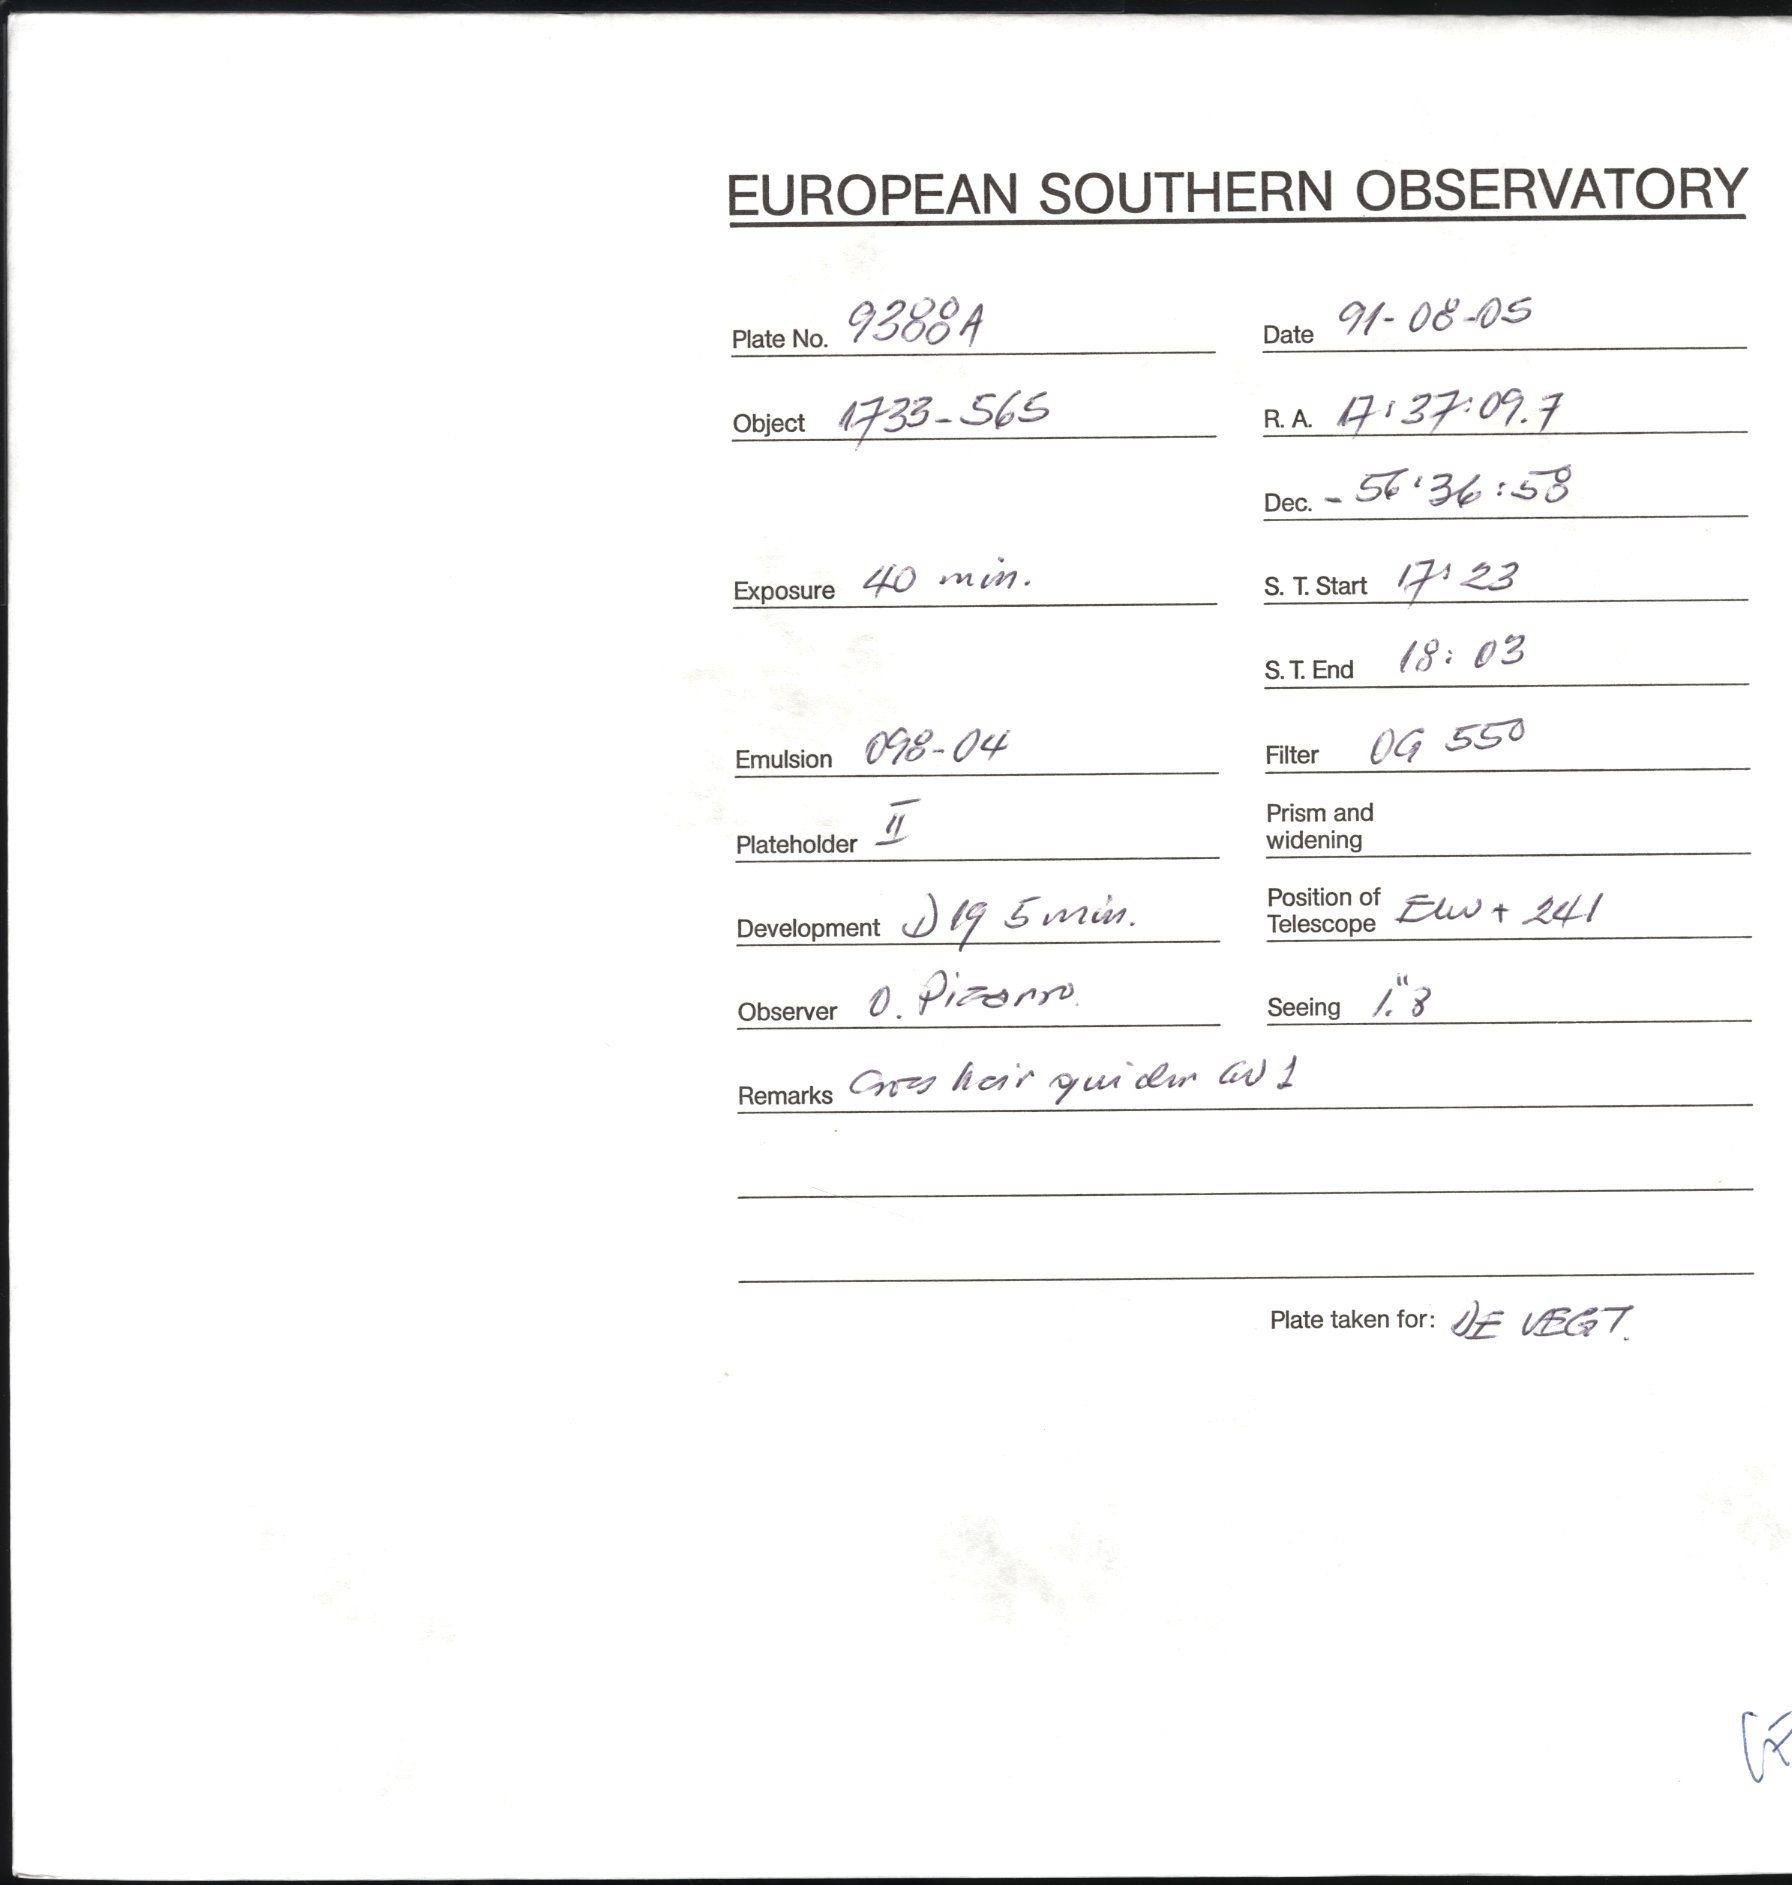 EUROPEAN SOUTHERN OBSERVATORY
Plate No. 9388A Date 91-08-05
Object 1733-565 R. A. 17:37:09.7
Dec. -56:36:58
Exposure 40 min. S. T. Start 17:23
S. T. End 18:03
Emulsion 098-04 Filter OG 550
Plateholder II Prism and
widening
Development D19 5 min. Position of
Telescope + 241
Observer O. Pizarro. Seeing 1."8
Remarks Cross hair guider 1
Plate taken for: DE VEGT.